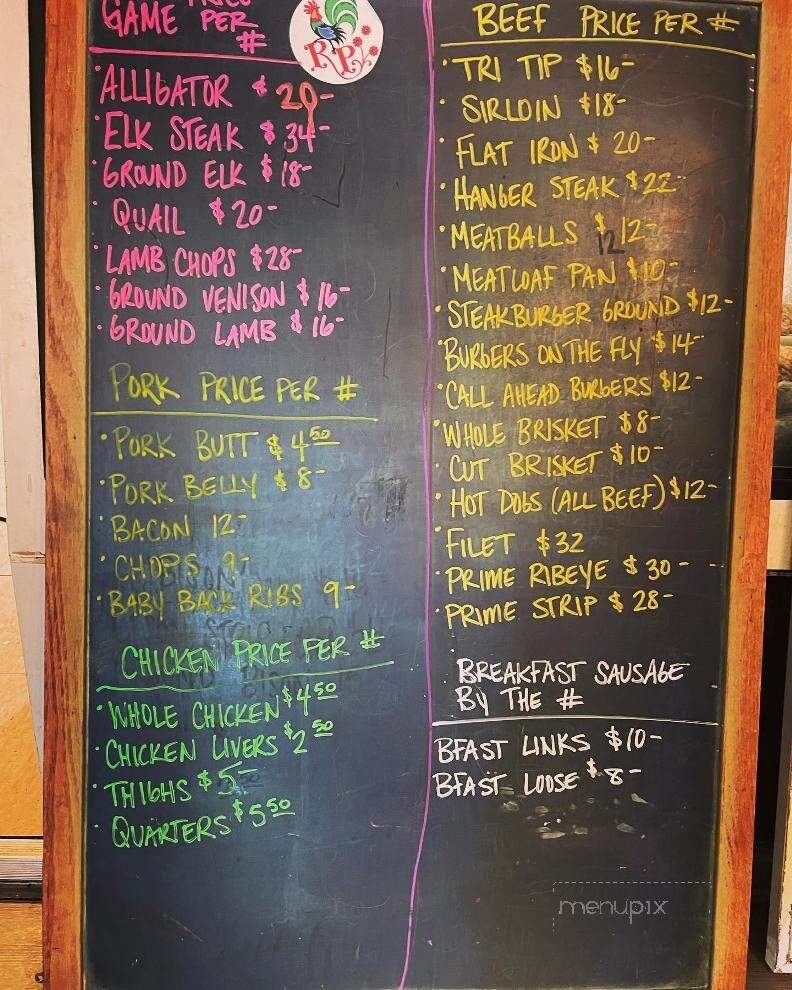 GAME PRICE
PER
#
RP
• ALLIGATOR $ 29-
• ELK STEAK $ 34-
• GROUND ELK $ 18-
• QUAIL $ 20-
• LAMB CHOPS $28-
• GROUND VENISON $ 16-
• GROUND LAMB $ 16-
PORK PRICE PER #
• PORK BUTT $ 4.50
• PORK BELLY $ 8-
• BACON 12-
• CHOPS 9-
• BABY BACK RIBS 9-
CHICKEN PRICE PER #
• WHOLE CHICKEN $4 50
• CHICKEN LIVERS $2 50
• THIGHS $5-
• QUARTERS $5 50
BEEF PRICE PER #
• TRI TIP $16-
• SIRLOIN $18-
• FLAT IRON $ 20-
• HANGER STEAK $22-
• MEATBALLS $ 12-
12
• MEATLOAF PAN $10-
• STEAKBURGER GROUND $12-
• BURGERS ON THE FLY $14-
• CALL AHEAD BURGERS $12-
• WHOLE BRISKET $8-
• CUT BRISKET $10-
• HOT DOGS (ALL BEEF) $12-
• FILET $32
• PRIME RIBEYE $30-
• PRIME STRIP $28-
BREAKFAST SAUSAGE
BY THE #
BFAST LINKS $10-
BFAST LOOSE $8-
menupix